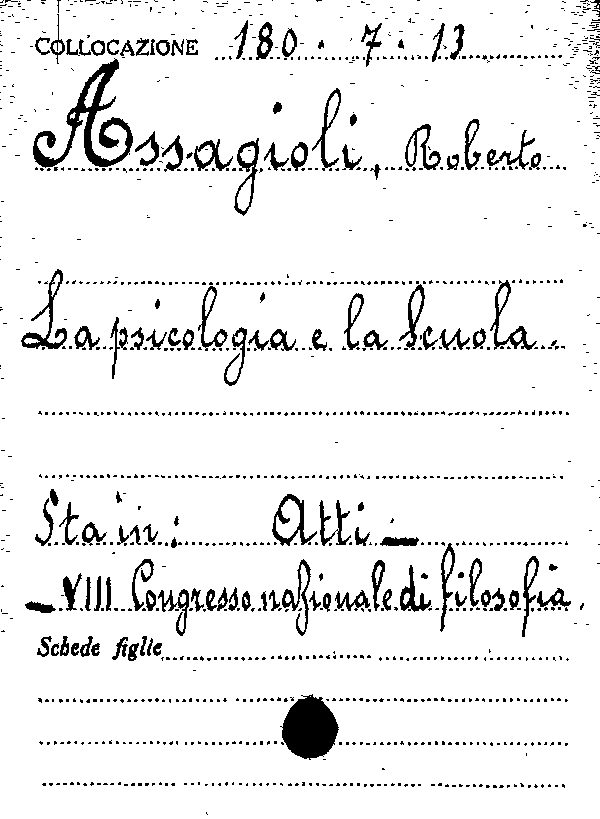 COLLOCAZIONE 180 · 7 · 13
Assagioli, Roberto
La psicologia e la scuola.
Sta in: Atti —
— VIII Congresso nazionale di filosofia.
Schede figlie